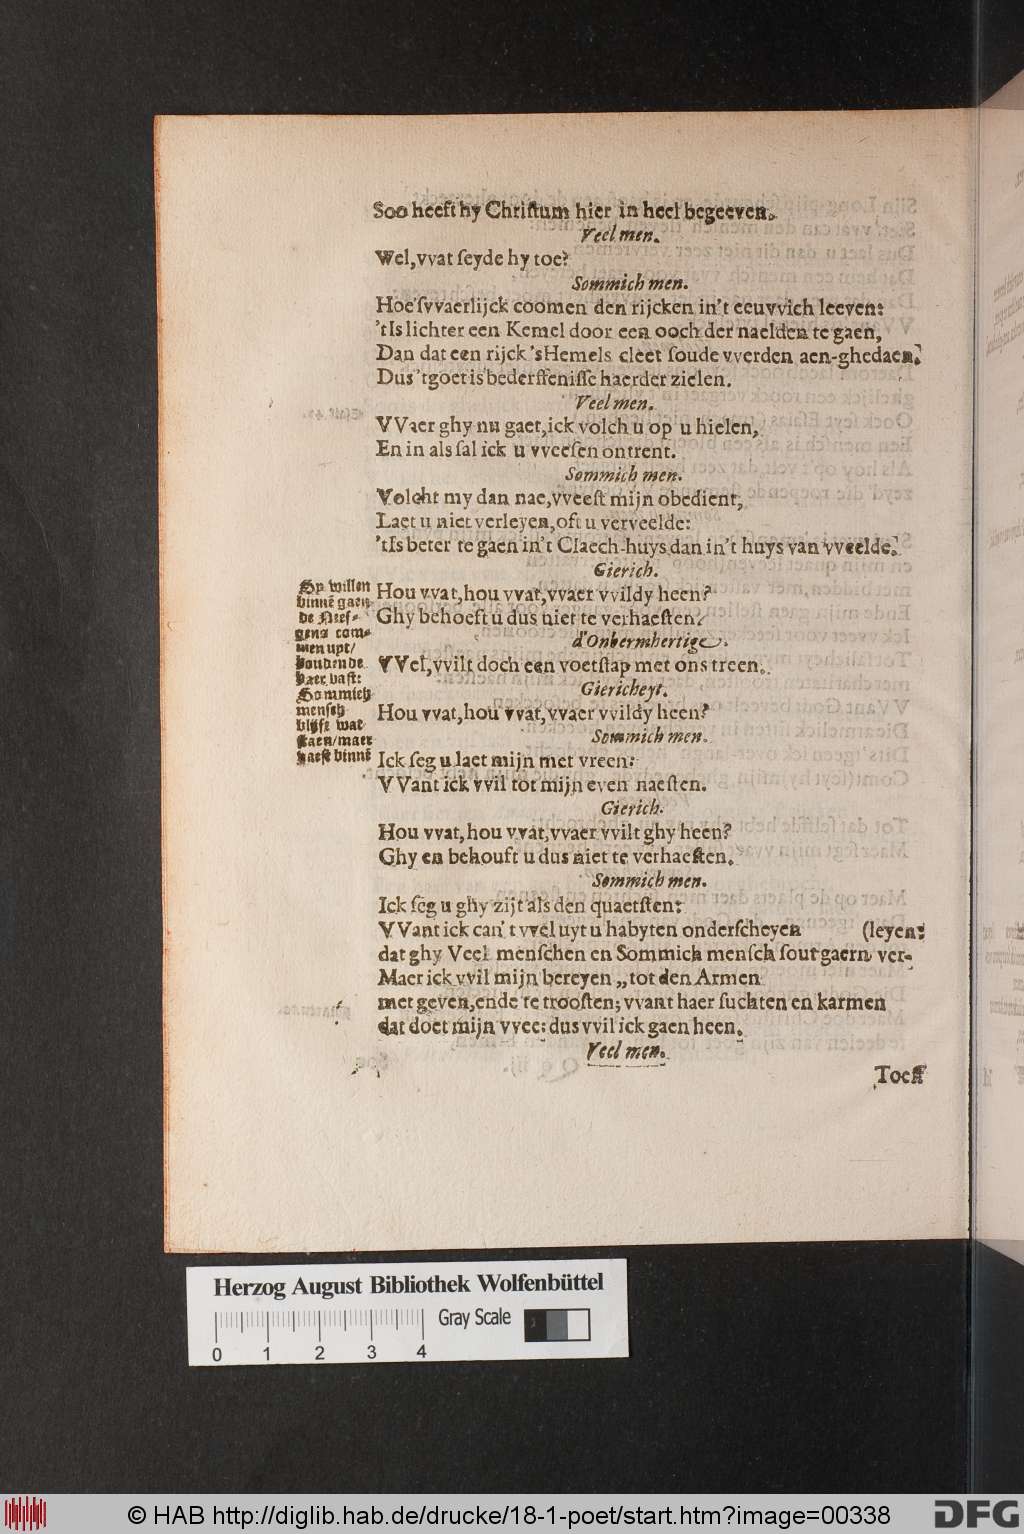 Soo heeft hy Christum hier in heel begeeven.
Veel men.
Wel, vvat seyde hy toe?
Sommich men.
Hoe svvaerlijck coomen den rijcken in't eeuvvich leeven:
'tIs lichter een Kemel door een ooch der naelden te gaen,
Dan dat een rijck 'sHemels cleet soude vverden aen-ghedaen.
Dus 'tgoet is bederffenisse haerder zielen.
Veel men.
VVaer ghy nu gaet, ick volch u op u hielen,
En in als sal ick u vveesen ontrent.
Sommich men.
Volcht my dan nae, vveest mijn obedient,
Laet u niet verleyen, oft u verveelde:
'tIs beter te gaen in't Claech-huys dan in't huys van vveelde.
Gierich.
Sy willen
binnē gaen
de Nees-
gens com-
men uyt/
houden de
haer vast:
Sommich
mensch
blijft wat
staen/maer
haest binnē
Hou vvat, hou vvat, vvaer vvildy heen?
Ghy behoeft u dus niet te verhaesten.
d'Onbermhertige.
VVel, vvilt doch een voetstap met ons treen.
Giericheyt.
Hou vvat, hou vvat, vvaer vvildy heen?
Sommich men.
Ick seg u laet mijn met vreen:
VVant ick vvil tot mijn even naesten.
Gierich.
Hou vvat, hou vvat, vvaer vvilt ghy heen?
Ghy en behouft u dus niet te verhaesten.
Sommich men.
Ick seg u ghy zijt als den quaetsten:
VVant ick can't vvel uyt u habyten onderscheyen (leyen:
dat ghy Veel menschen en Sommich mensch sout gaern ver-
Maer ick vvil mijn bereyen „tot den Armen
met geven, ende te troosten; vvant haer suchten en karmen
dat doet mijn vvee: dus vvil ick gaen heen.
Veel men.
Toeft
Herzog August Bibliothek Wolfenbüttel
Gray Scale
0 1 2 3 4
© HAB http://diglib.hab.de/drucke/18-1-poet/start.htm?image=00338
DFG